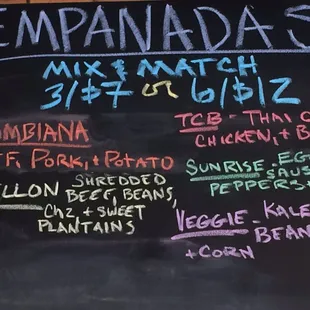 EMPANADAS
MIX & MATCH
3/$7 or 6/$12
MBIANA
F, PORK, + POTATO
LLON SHREDDED
BEEF, BEANS,
CHZ + SWEET
PLANTAINS
TCB - THAI C
CHICKEN, + B
SUNRISE - EG
SAUS
PEPPERS
VEGGIE - KALE
BEAN
+ CORN